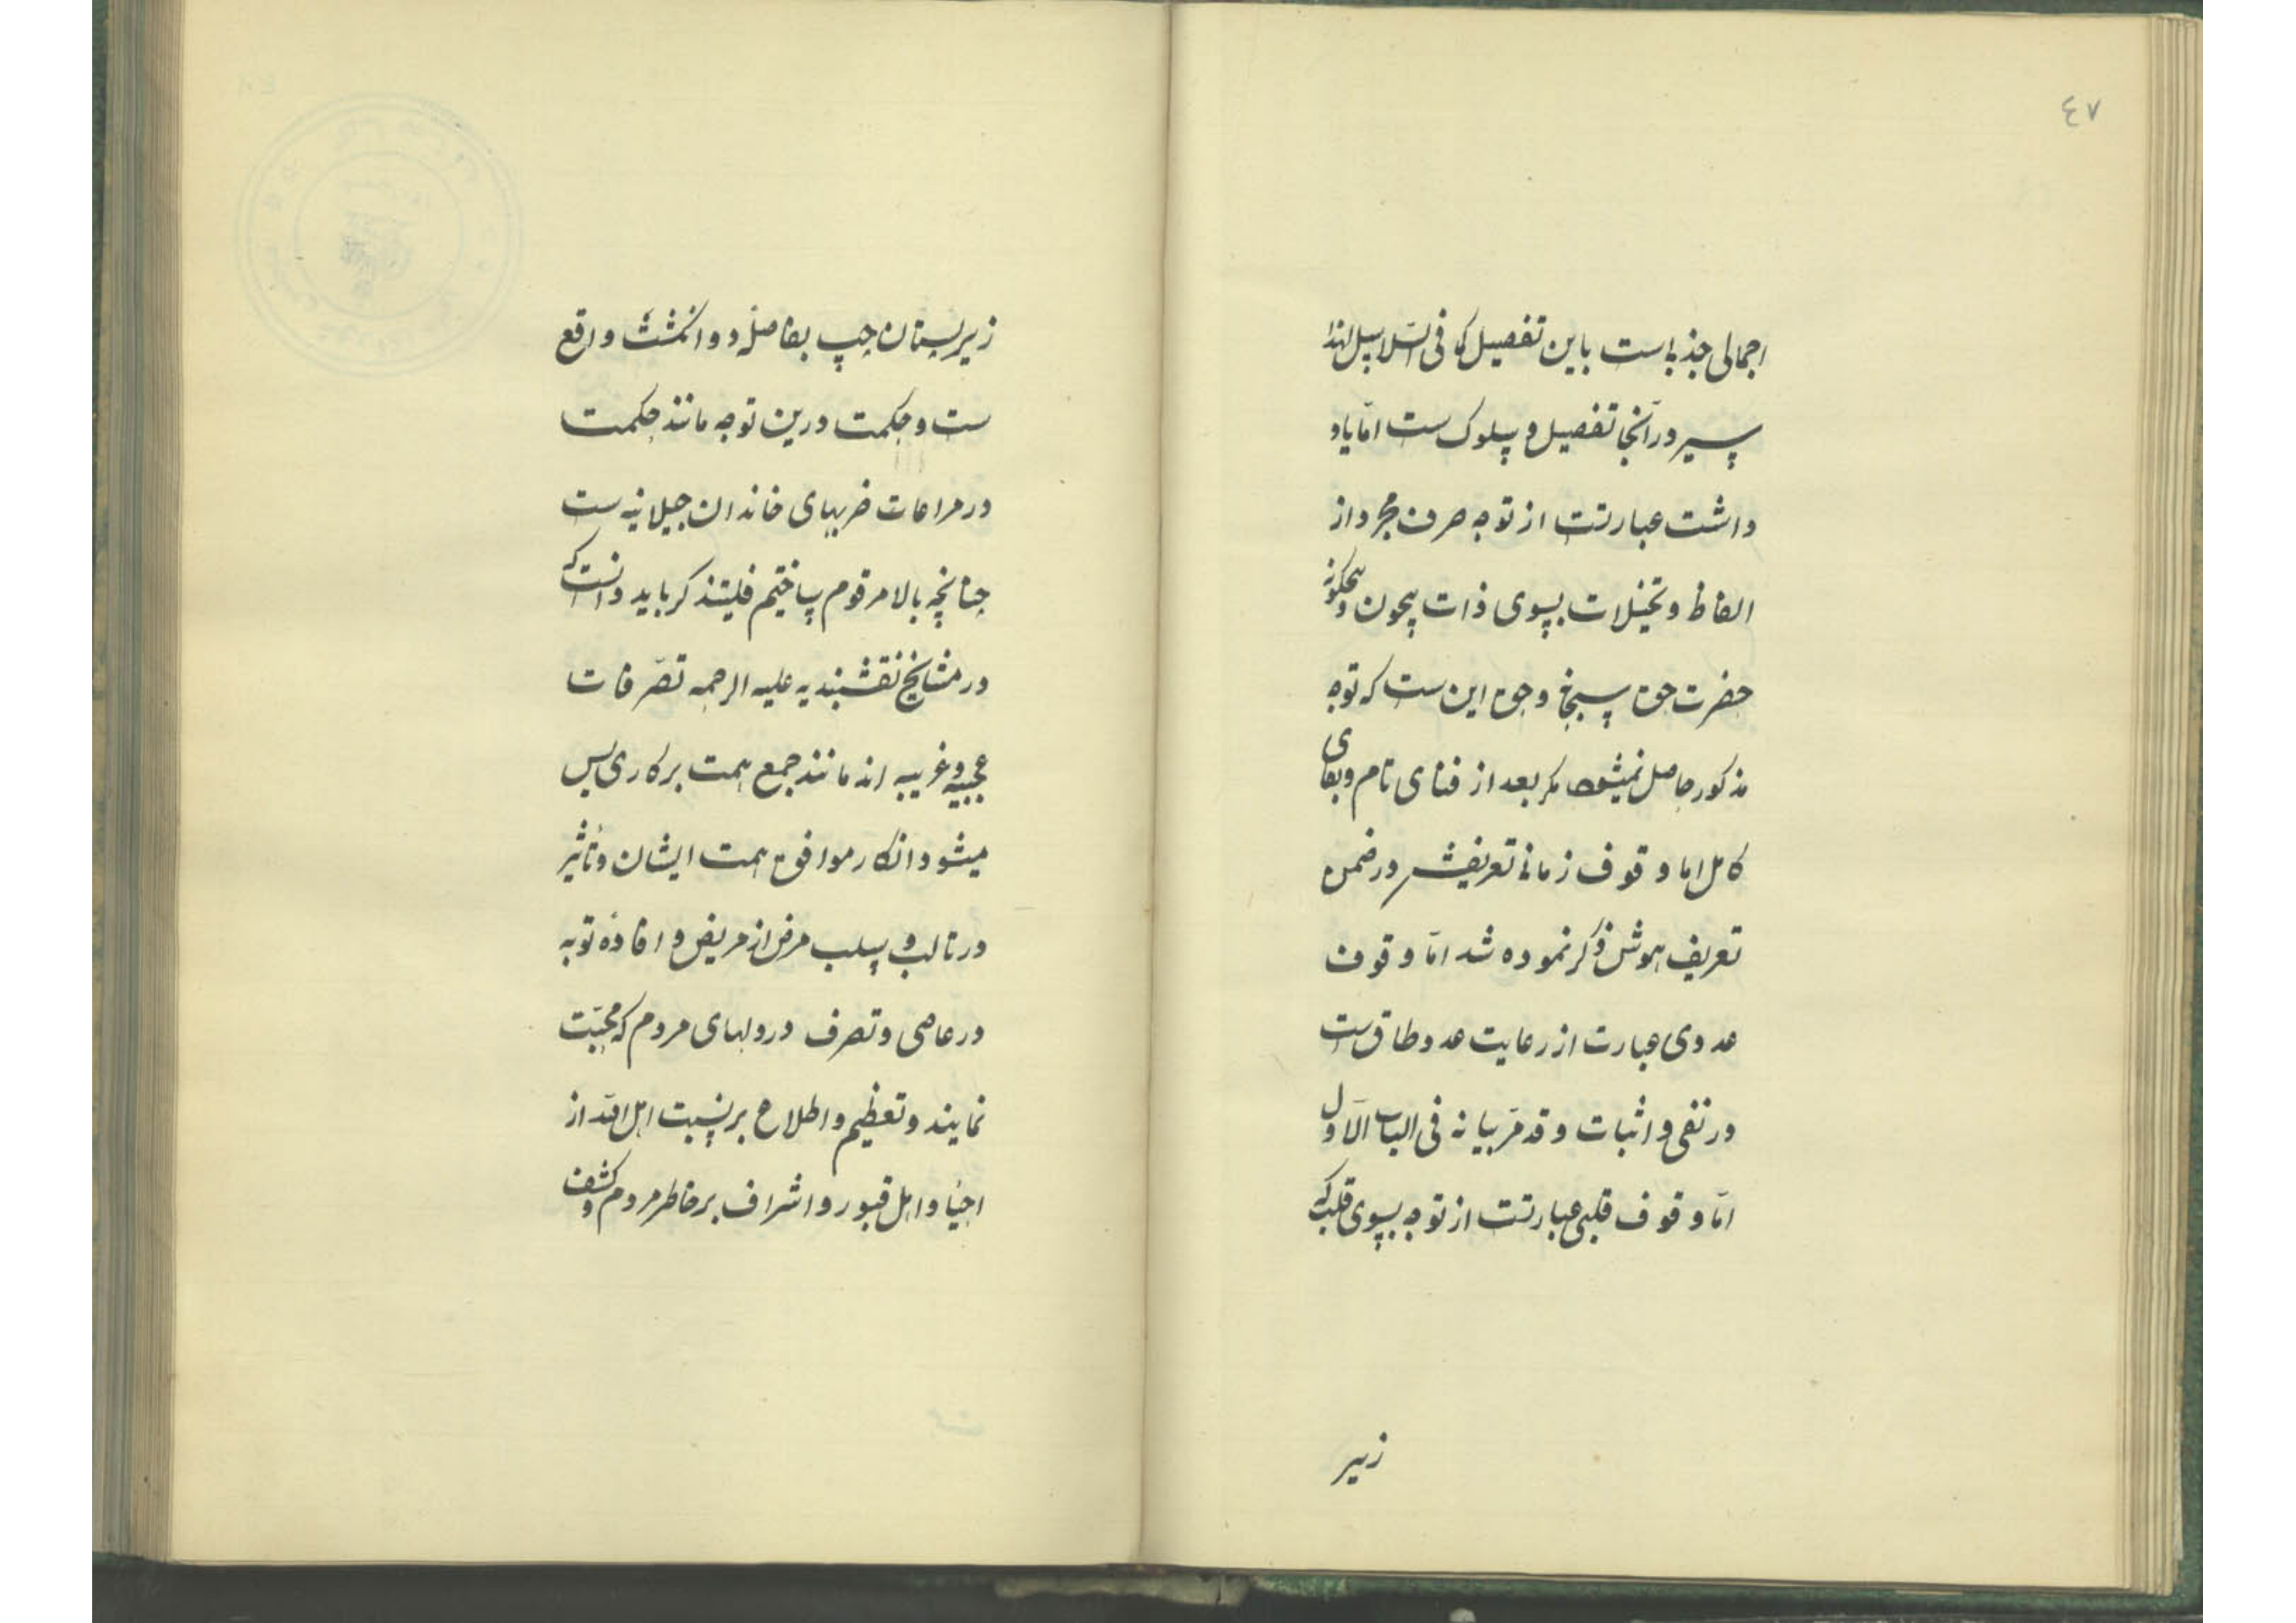 ٤٧
اجمالی جذبه است باین تفصیل که فی السلاسل لهذا
سیر در آنجا تفصیل و سلوک ست اما یاد
داشت عبارتست از توجه صرف مجرد از
الفاظ و تخیلات بسوی ذات بیچون و بیچگونه
حضرت حق سبحانه و حق این ست که توجه
مذکور حاصل نمیشود مگر بعد از فنای تام و بقای
کامل اما وقوف زمانی تعریفش در ضمن
تعریف هوش ذکر نموده شد امّا وقوف
عددی عبارت از رعایت عدد طاق ست
در نفی و اثبات و قد مرّ بیانه فی الباب الاوّل
امّا وقوف قلبی عبارتست از توجه بسوی قلب که
زیر
زیر پستان چپ بفاصله دو انگشت واقع
ست و حکمت درین توجه مانند حکمت
در مراعات ضربهای خاندان جیلانیه ست
چنانچه بالا مرقوم ساختیم فلیتذکر باید دانست که
در مشایخ نقشبندیه علیه الرحمه تصرّفات
عجیبه و غریبه اند مانند جمع همت بر کاری پس
میشود انکار موافق همت ایشان و تاثیر
در تالب و سلب مرض از مریض و افاده توبه
در عاصی و تصرف در دلهای مردم که محبّت
نمایند و تعظیم و اطلاع بر نسبت اهل الله از
احیا و اهل قبور و اشراف بر خاطر مردم و کشف